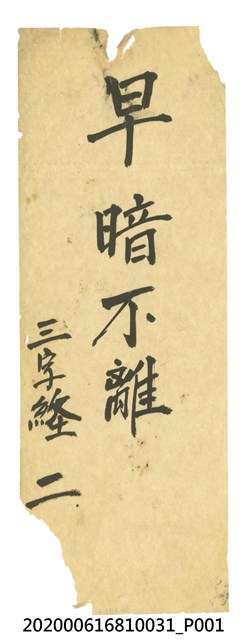 早暗不離
三字經 二
202000616810031_P001